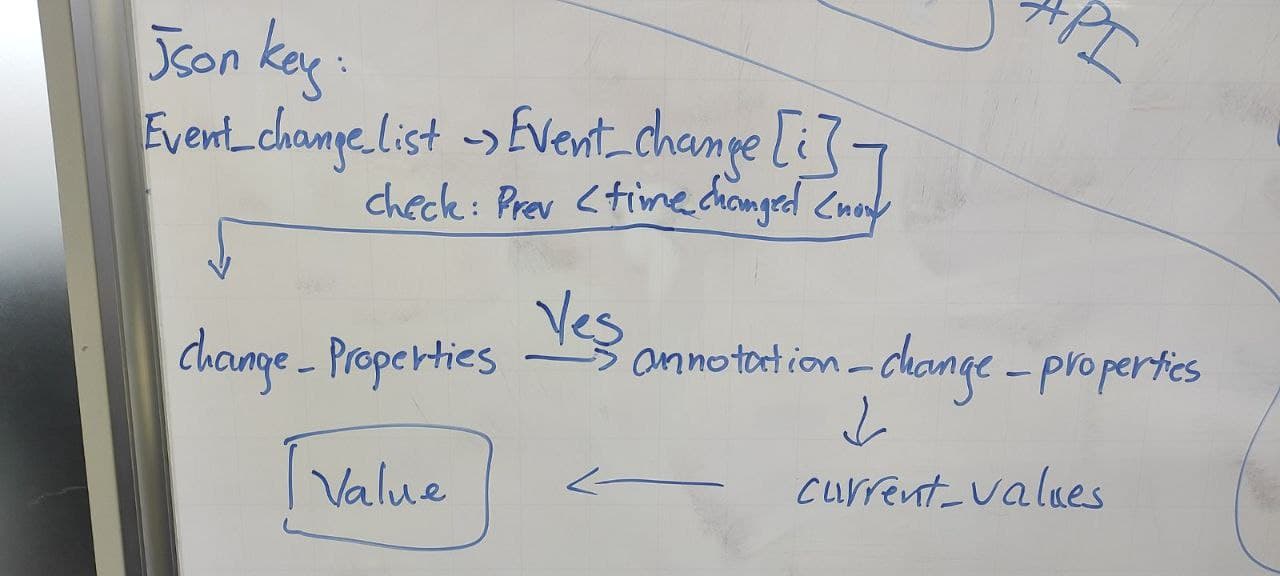 API
Json key:
Event_change_list -> Event_change [i]
check: Prev < time_changed < now
Yes
change_Properties → annotation_change_properties
↓
Value ← current_values